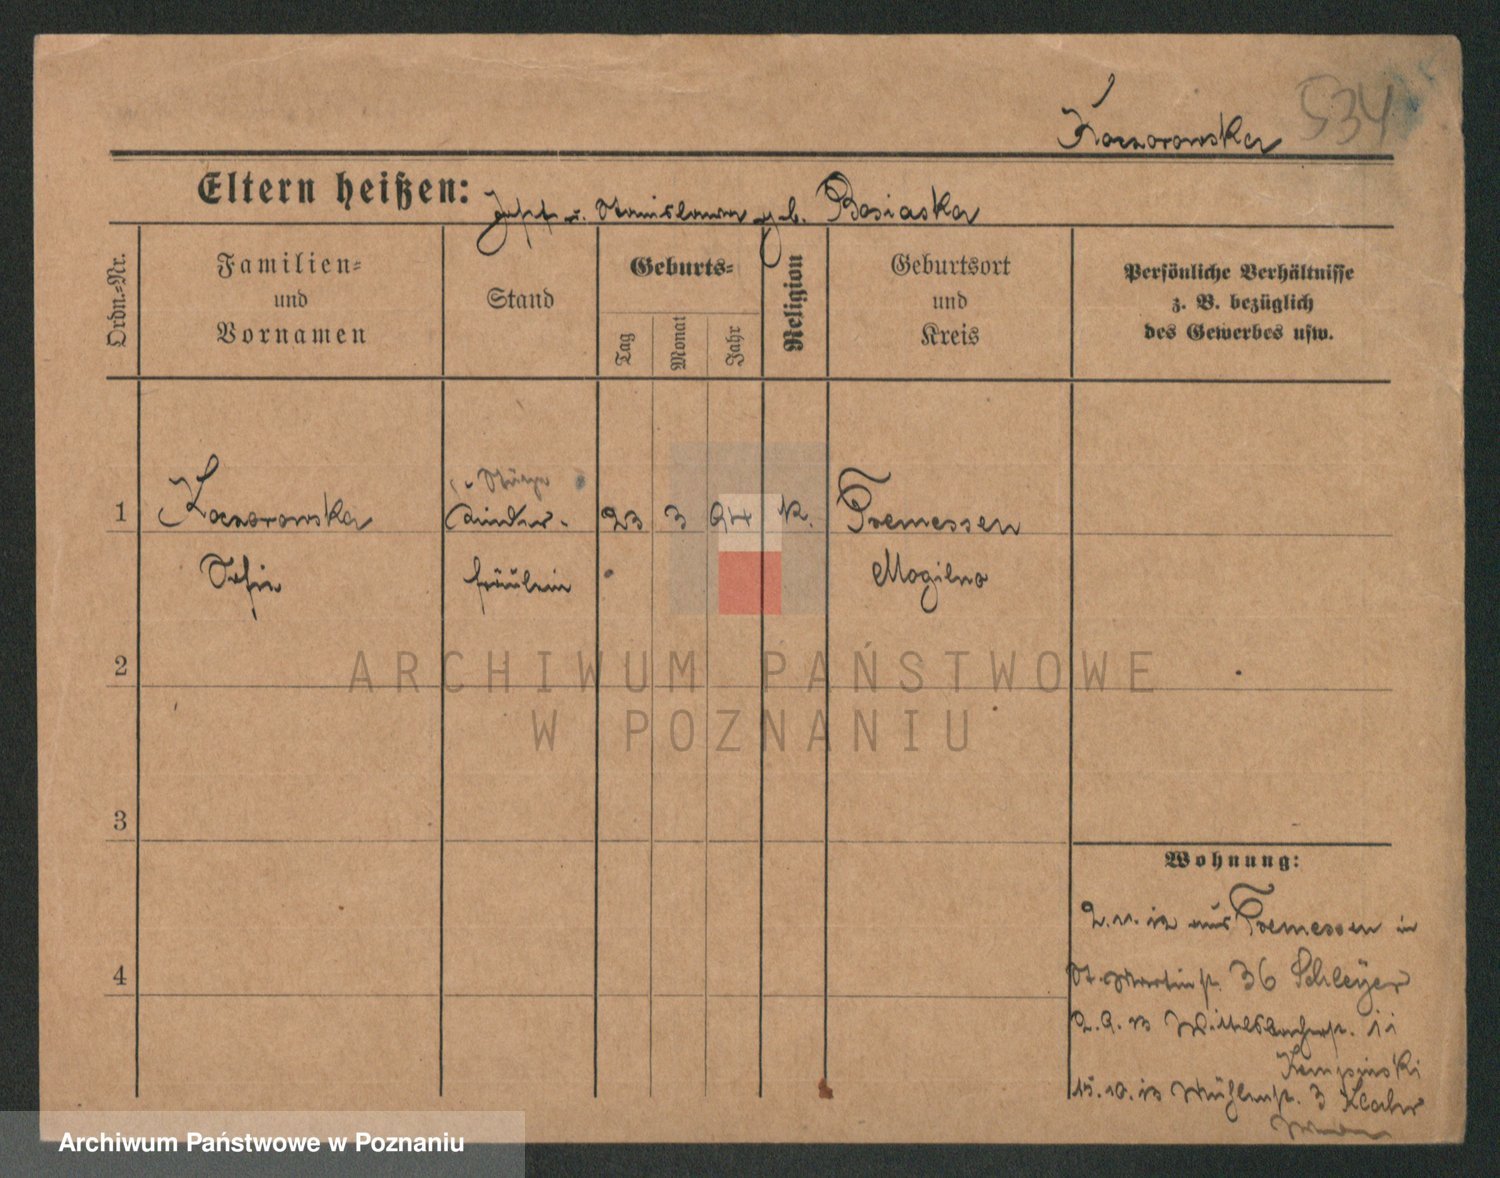 534
Kaczorowska
Eltern heißen: Josef u. Stanislawa geb. Basiaska
Ordn.-Nr.
Familien-
und
Vornamen
Stand
Geburts-
Tag
Monat
Jahr
Religion
Geburtsort
und
Kreis
Persönliche Verhältnisse
z. B. bezüglich
des Gewerbes usw.
1 Kaczorowska Kinder- 23 3 94 k. Tremessen
Sofie fräulein Mogilno
2
3
4
Wohnung:
aus Tremessen in
St. Martinstr. 36 Schleyer
2.9.13 Wittelsbacherstr. 11
Kempinski
15.10.13 Mühlenstr. 3
ARCHIWUM PAŃSTWOWE
W POZNANIU
Archiwum Państwowe w Poznaniu